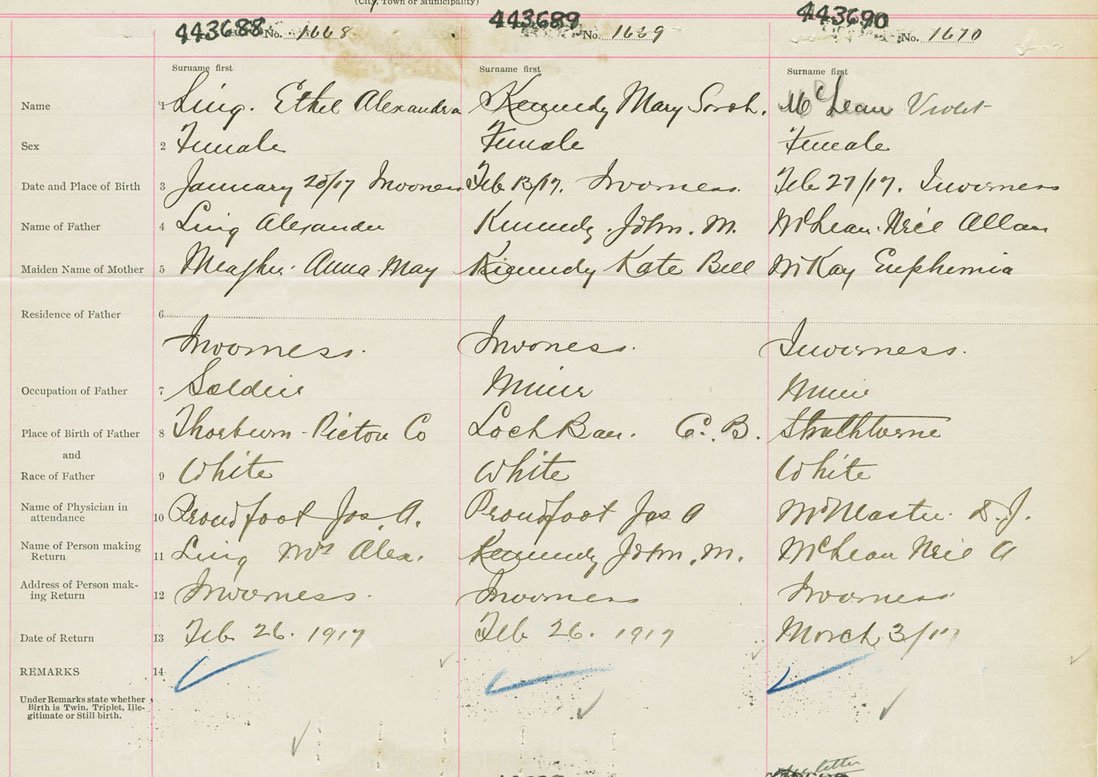 (City, Town or Municipality)
443688 No. 1668 443689 No. 1669 443690 No. 1670
Surname first Surname first Surname first
Name 1 Ling. Ethel Alexandra Kennedy Mary Sarah. McLean Violet
Sex 2 Female Female Female
Date and Place of Birth 3 January /17 Inverness Feb 13/17. Inverness. Feb 27/17. Inverness
Name of Father 4 Ling Alexander Kennedy. John. M. McLean. Neil Allan
Maiden Name of Mother 5 Meagher. Anna May Kennedy Kate Bell McKay Euphemia
Residence of Father 6
Inverness. Inverness. Inverness.
Occupation of Father 7 Soldier Miner Miner
Place of Birth of Father 8 Thorburn - Pictou Co Loch Ban. C. B. Strathlorne
and
Race of Father 9 White White White
Name of Physician in
attendance 10 Proudfoot Jos. A. Proudfoot Jos A McMaster. D. J.
Name of Person making
Return 11 Ling Mrs Alex. Kennedy John. M. McLean Neil A
Address of Person mak-
ing Return 12 Inverness. Inverness Inverness
Date of Return 13 Feb 26. 1917 Feb 26. 1917 March 3/17
REMARKS 14
Under Remarks state whether
Birth is Twin, Triplet, Ille-
gitimate or Still birth.
letter